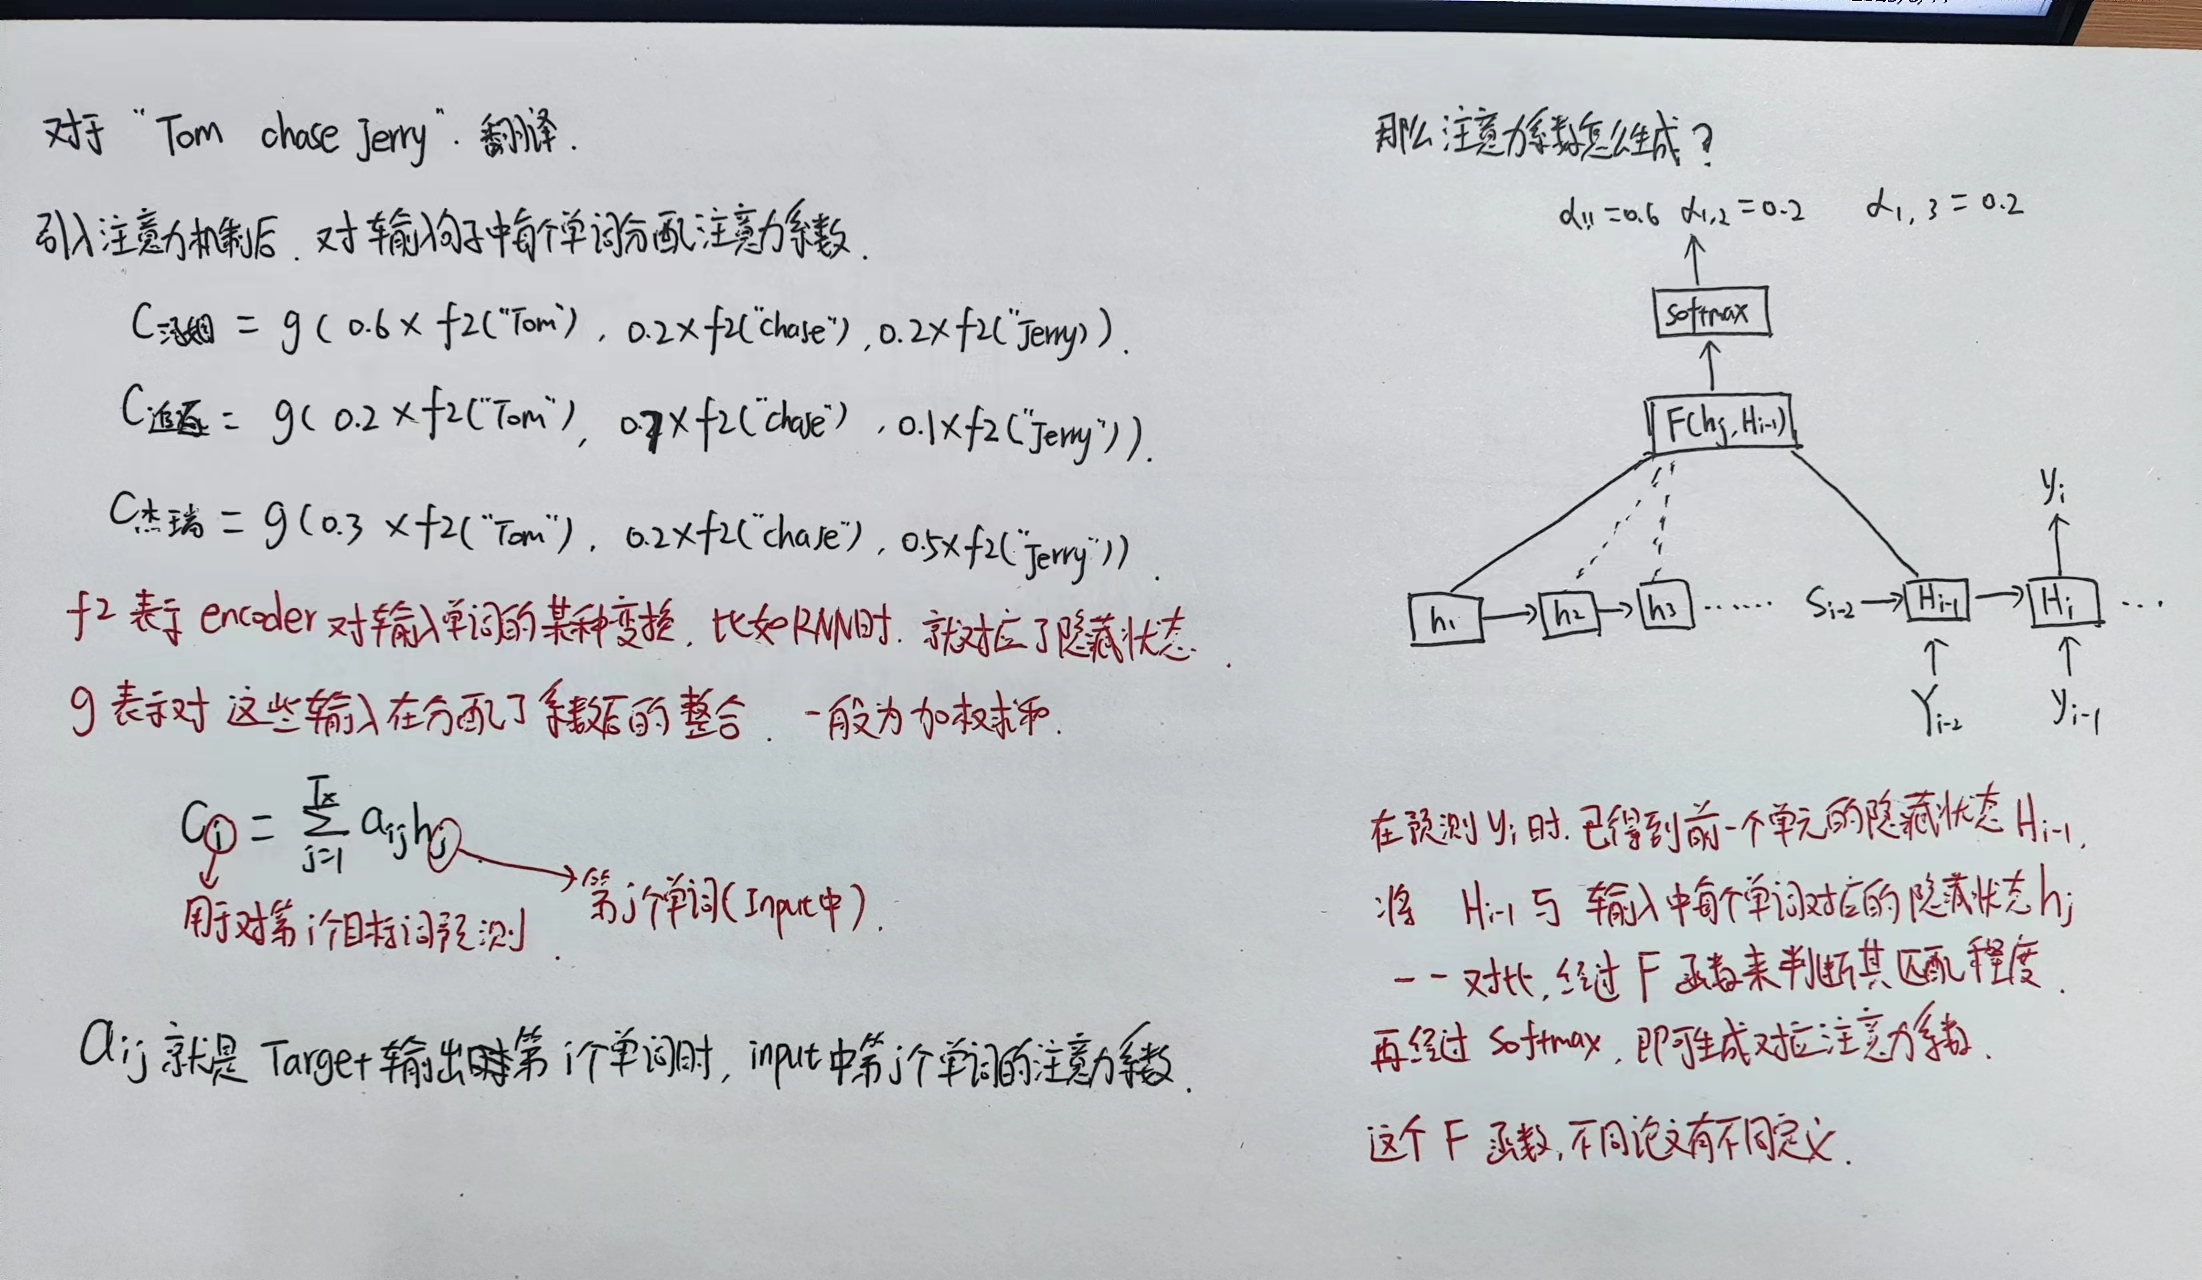 对于 "Tom chase Jerry". 翻译.
引入注意力机制后. 对输入句子中每个单词分配注意力系数.
C汤姆 = g(0.6×f2("Tom"), 0.2×f2("chase"), 0.2×f2("Jerry)).
C追逐 = g(0.2×f2("Tom"), 0.7×f2("chase"), 0.1×f2("Jerry")).
C杰瑞 = g(0.3×f2("Tom"), 0.2×f2("chase"), 0.5×f2("Jerry")).
f2 表示 encoder 对输入单词的某种变换. 比如RNN时. 就对应了隐藏状态.
g 表示对 这些输入在分配了系数后的整合. 一般为加权求和.
Ci = Σ_{j=1}^{Tx} aij hj
用于对第i个目标词预测.
第j个单词(Input中).
aij 就是 Target 输出第i个单词时, input中第j个单词的注意力系数.
那么注意力系数怎么生成?
α1,1=0.6 α1,2=0.2 α1,3=0.2
softmax
F(hj, Hi-1)
yi
h1 h2 h3 ...... Si-2 Hi-1 Hi ...
Yi-2 yi-1
在预测yi时. 已得到前一个单元的隐藏状态Hi-1,
将 Hi-1 与 输入中每个单词对应的隐藏状态hj
一一对比, 经过F函数来判断其匹配程度.
再经过 softmax, 即可生成对应注意力系数.
这个F函数, 不同论文有不同定义.